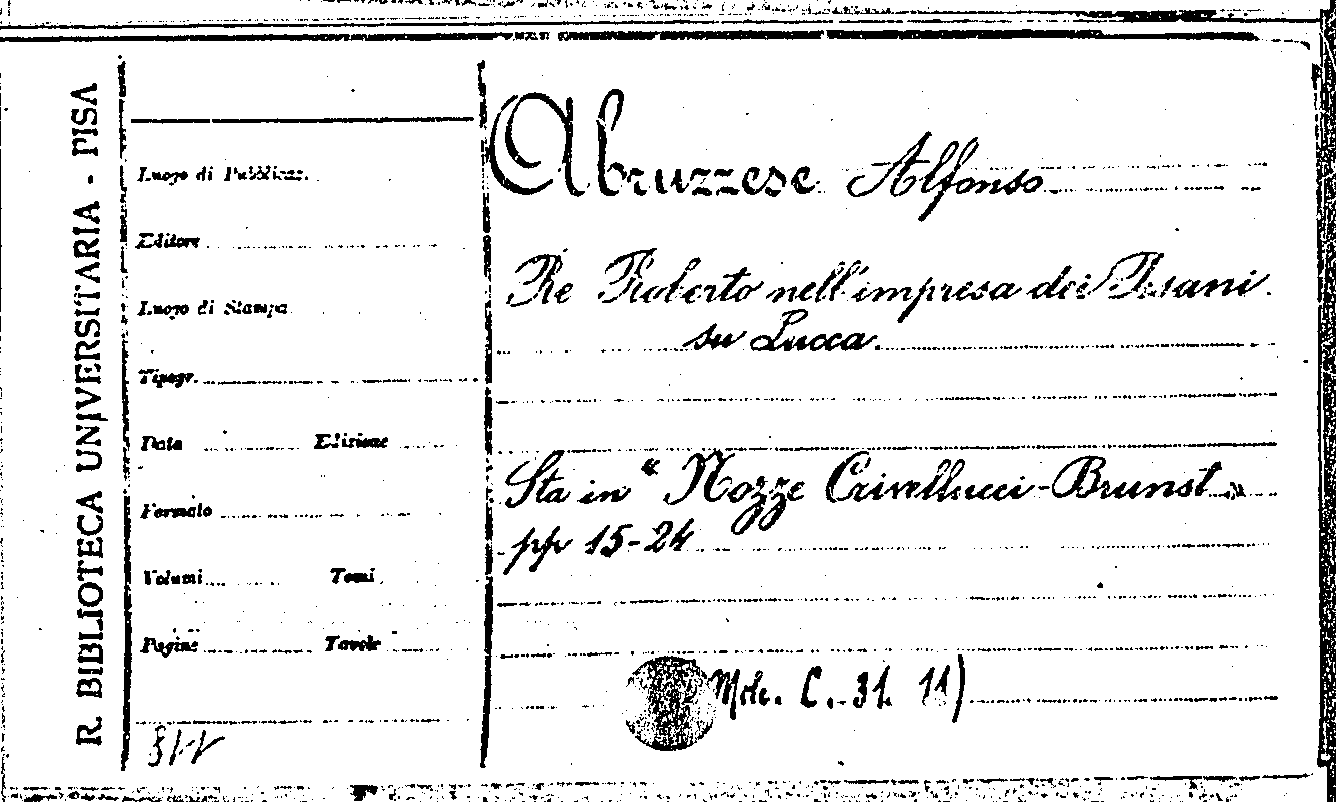 R. BIBLIOTECA UNIVERSITARIA - PISA
Luogo di Pubblicaz.
Editore
Luogo di Stampa
Tipogr.
Data Edizione
Formato
Volumi Tomi
Pagine Tavole
Abruzzese Alfonso
Re Roberto nell'impresa dei Pisani
su Lucca.
Sta in "Nozze Crivellucci-Brunst»
pp 15-24
C. 31. 11)